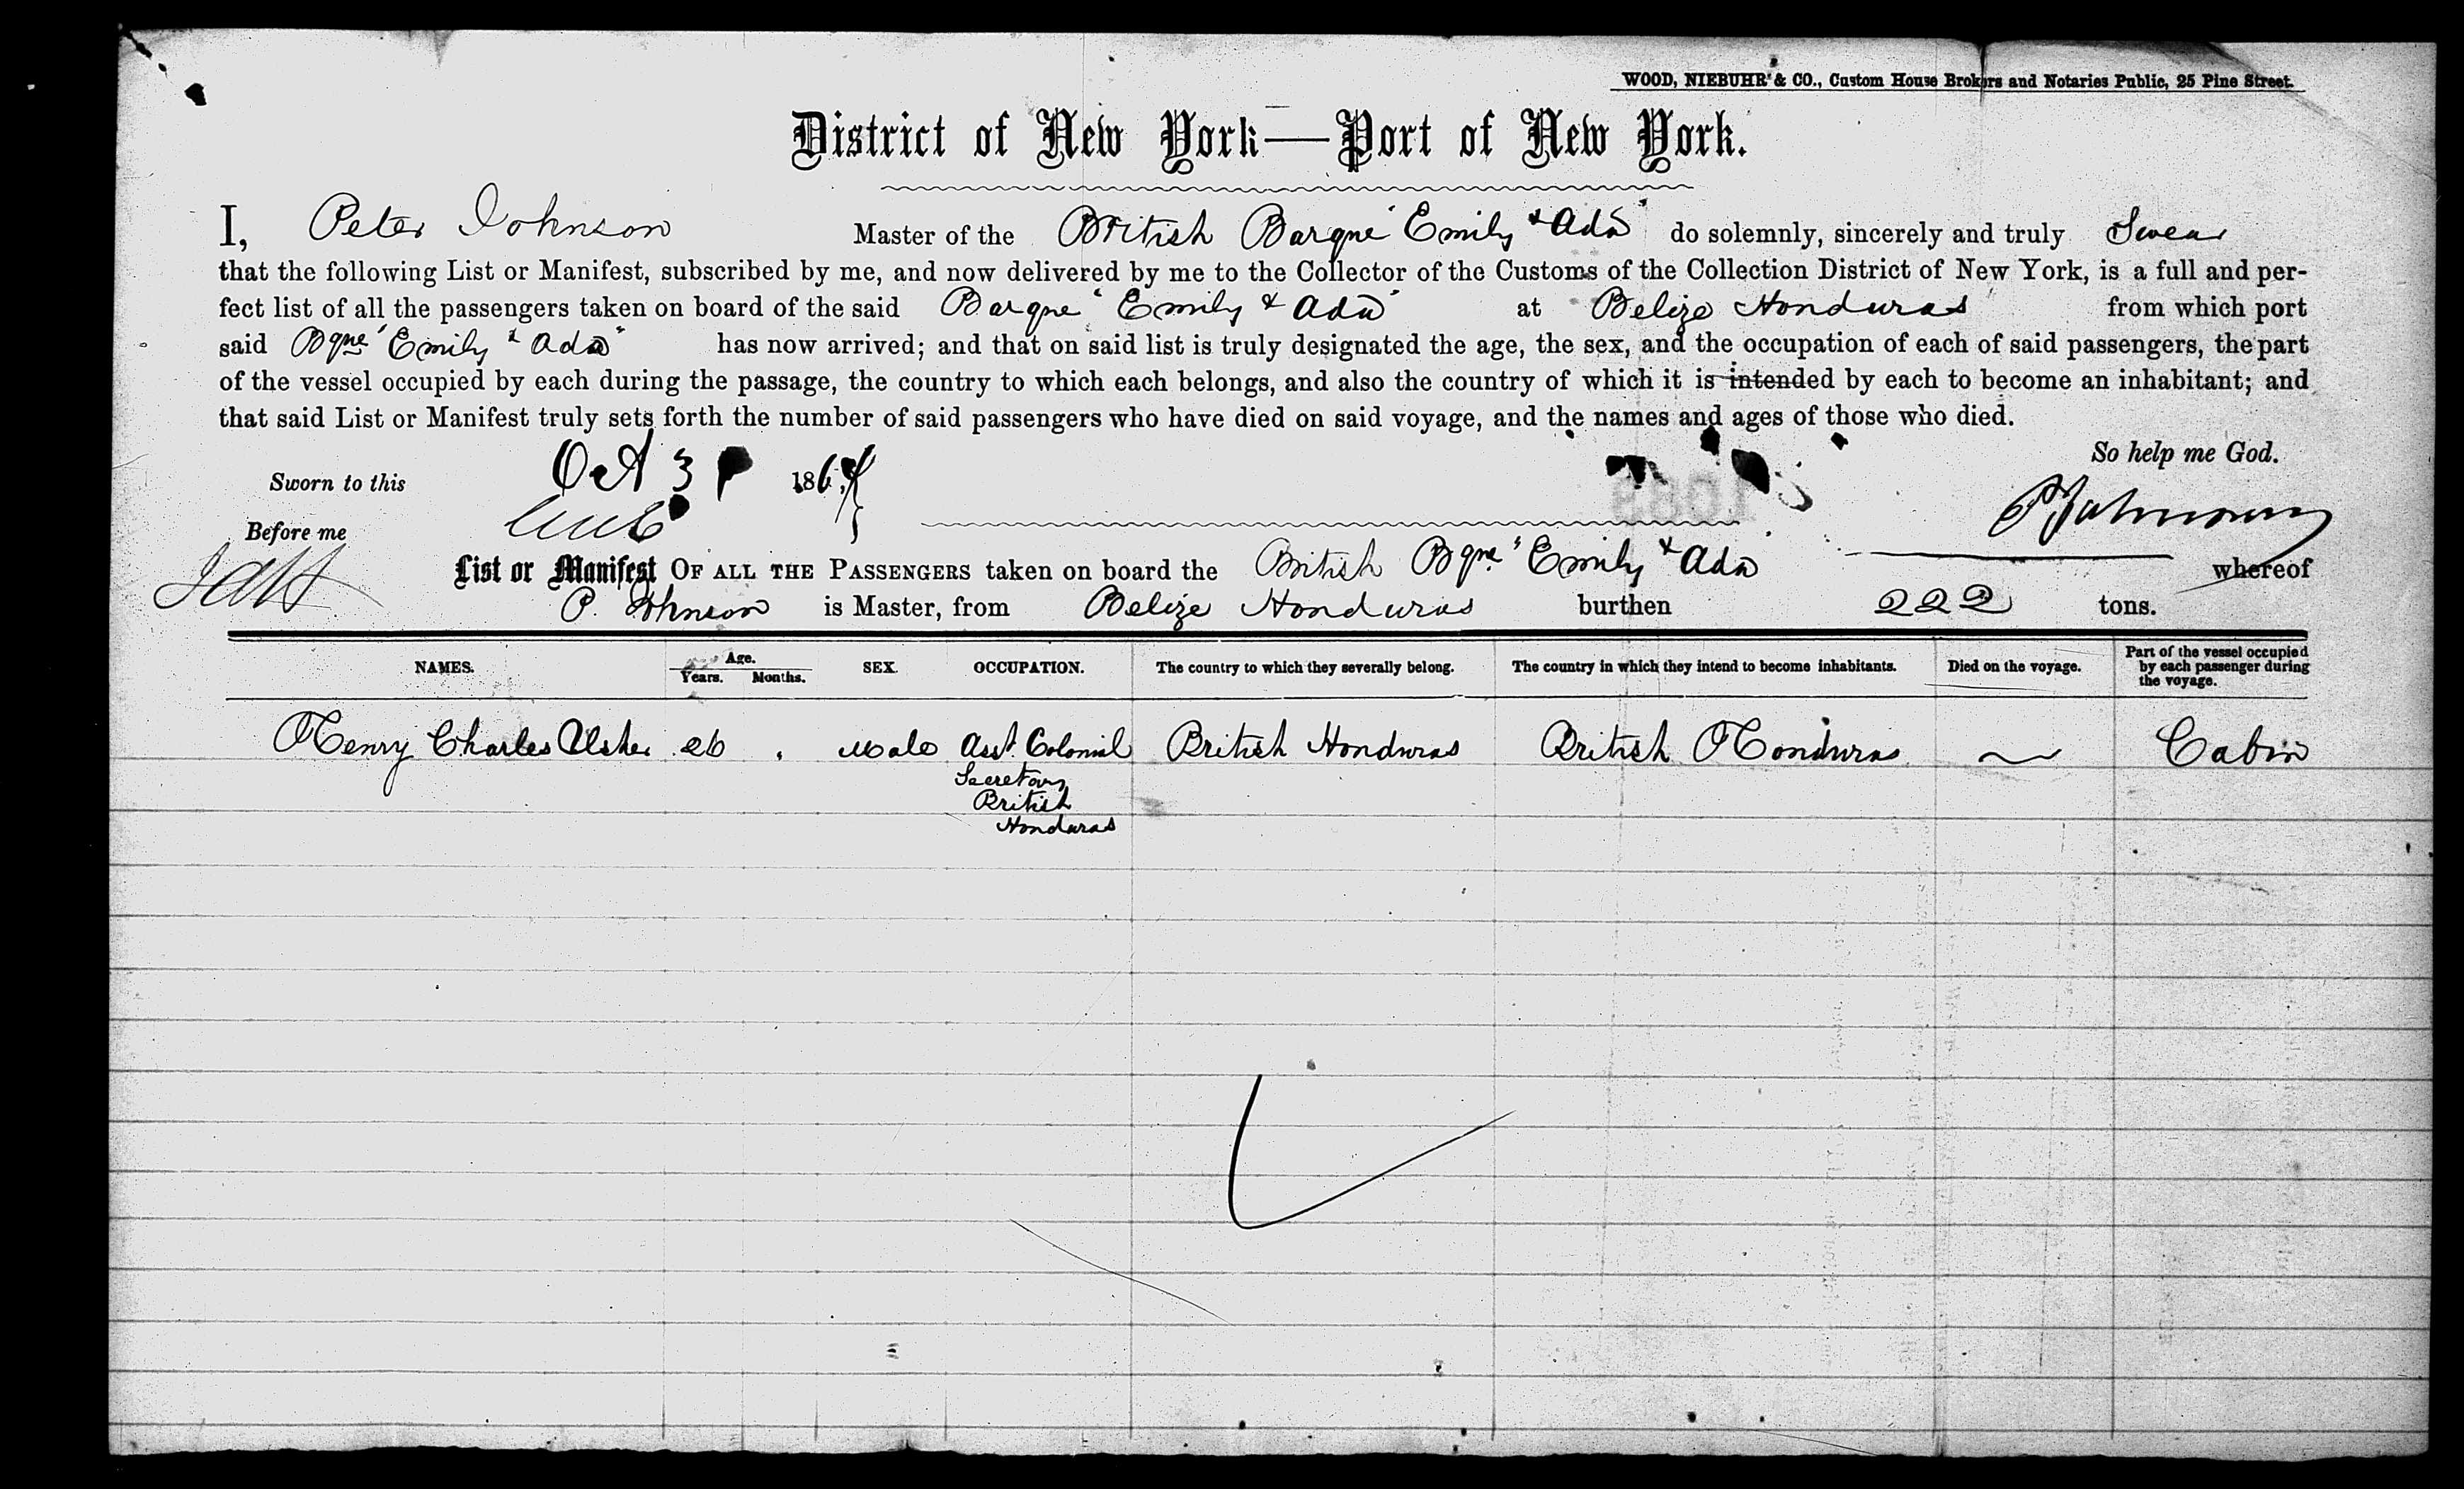 WOOD, NIEBUHR & CO., Custom House Brokers and Notaries Public, 25 Pine Street.
District of New York—Port of New York.
I, Peter Johnson Master of the British Barque "Emily & Ada" do solemnly, sincerely and truly Swear
that the following List or Manifest, subscribed by me, and now delivered by me to the Collector of the Customs of the Collection District of New York, is a full and per-
fect list of all the passengers taken on board of the said Barque "Emily & Ada" at Belize Honduras from which port
said Bqne "Emily & Ada" has now arrived; and that on said list is truly designated the age, the sex, and the occupation of each of said passengers, the part
of the vessel occupied by each during the passage, the country to which each belongs, and also the country of which it is intended by each to become an inhabitant; and
that said List or Manifest truly sets forth the number of said passengers who have died on said voyage, and the names and ages of those who died.
So help me God.
Sworn to this Oct 3 186
Before me
P Johnson
List or Manifest OF ALL THE PASSENGERS taken on board the British Bqne "Emily & Ada" whereof
P. Johnson is Master, from Belize Honduras burthen 222 tons.
NAMES. Age. Years. Months. SEX. OCCUPATION. The country to which they severally belong. The country in which they intend to become inhabitants. Died on the voyage. Part of the vessel occupied by each passenger during the voyage.
Henry Charles Usher 26 Male Asst. Colonial British Honduras British Honduras Cabin
Secretary
British
Honduras